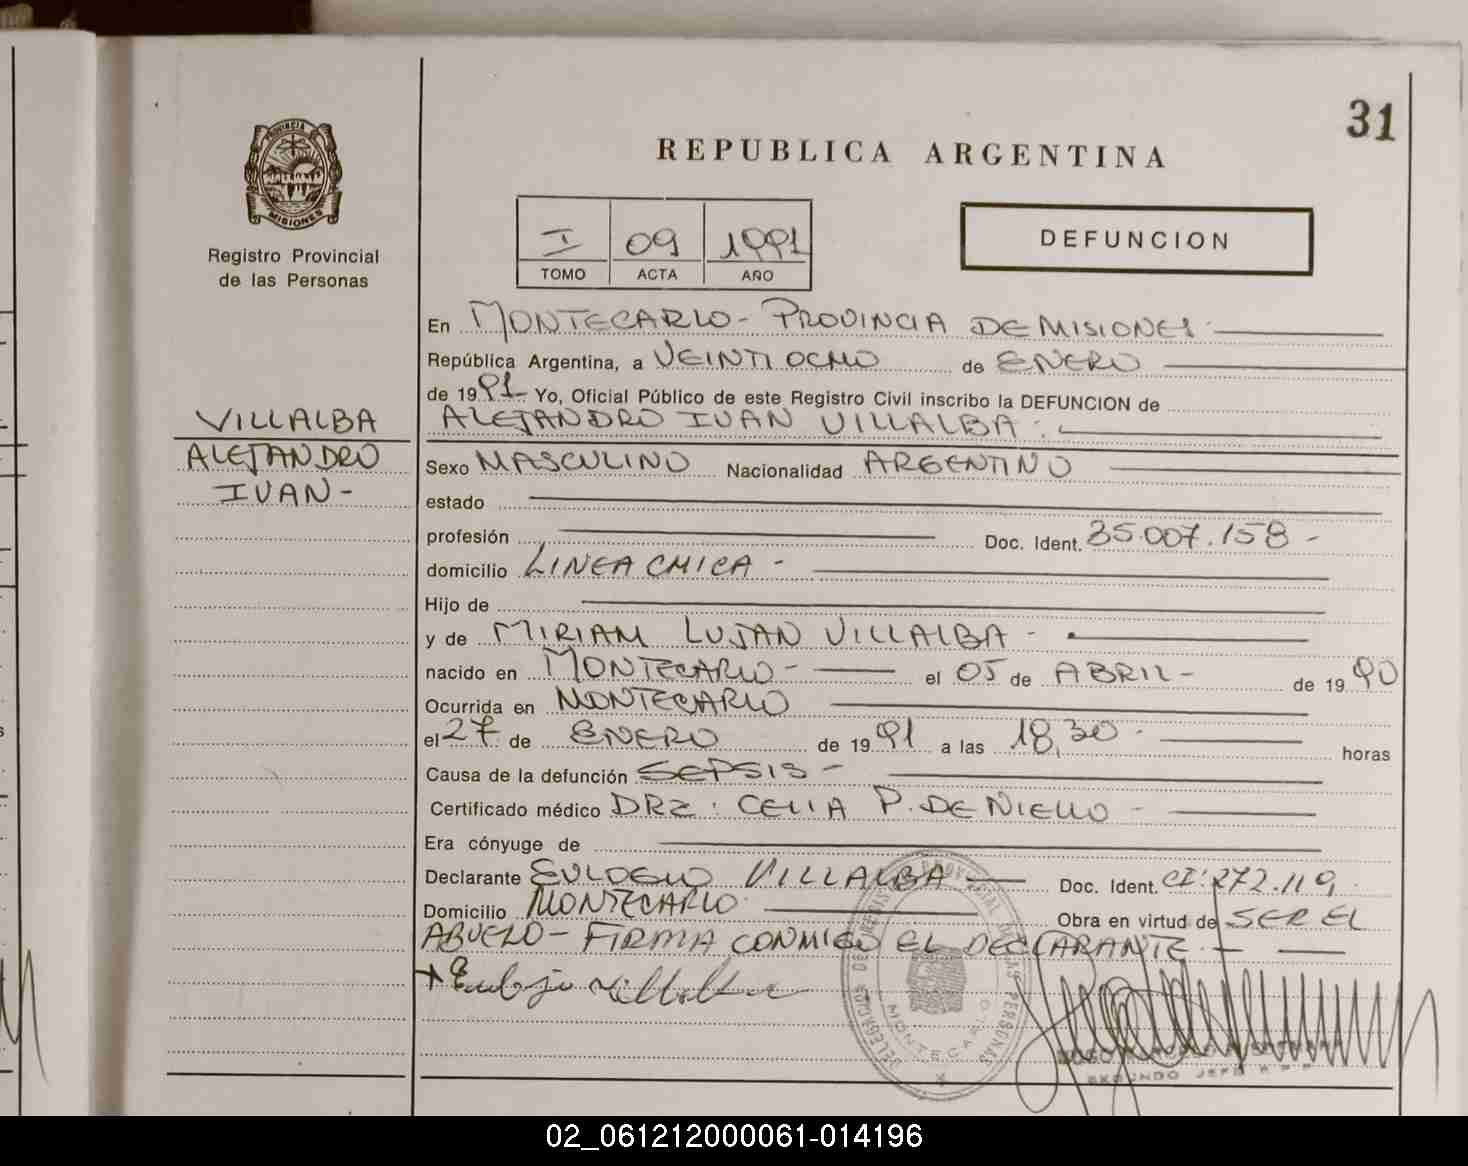 31
REPUBLICA ARGENTINA
PROVINCIA DE
MISIONES
Registro Provincial
de las Personas
I 09 1991
TOMO ACTA AÑO
DEFUNCION
VILLALBA
ALEJANDRO
IVAN-
En MONTECARLO - PROVINCIA DE MISIONES
República Argentina, a VEINTIOCHO de ENERO
de 1991 Yo, Oficial Público de este Registro Civil inscribo la DEFUNCION de
ALEJANDRO IVAN VILLALBA
Sexo MASCULINO Nacionalidad ARGENTINO
estado
profesión Doc. Ident. 35.007.158 -
domicilio LINEA CHICA -
Hijo de
y de MIRIAM LUJAN VILLALBA -
nacido en MONTECARLO - el 05 de ABRIL - de 1990
Ocurrida en MONTECARLO
el 27 de ENERO de 1991 a las 18,30 - horas
Causa de la defunción SEPSIS -
Certificado médico DRZ: CELIA P. DE NIELLO -
Era cónyuge de
Declarante EULOGIO VILLALBA - Doc. Ident. CI: 272.119
Domicilio MONTECARLO Obra en virtud de SER EL
ABUELO - FIRMA CONMIGO EL DECLARANTE -
Eulojio Villalba
MONTECARLO
SEGUNDO JEFE
02_061212000061-014196